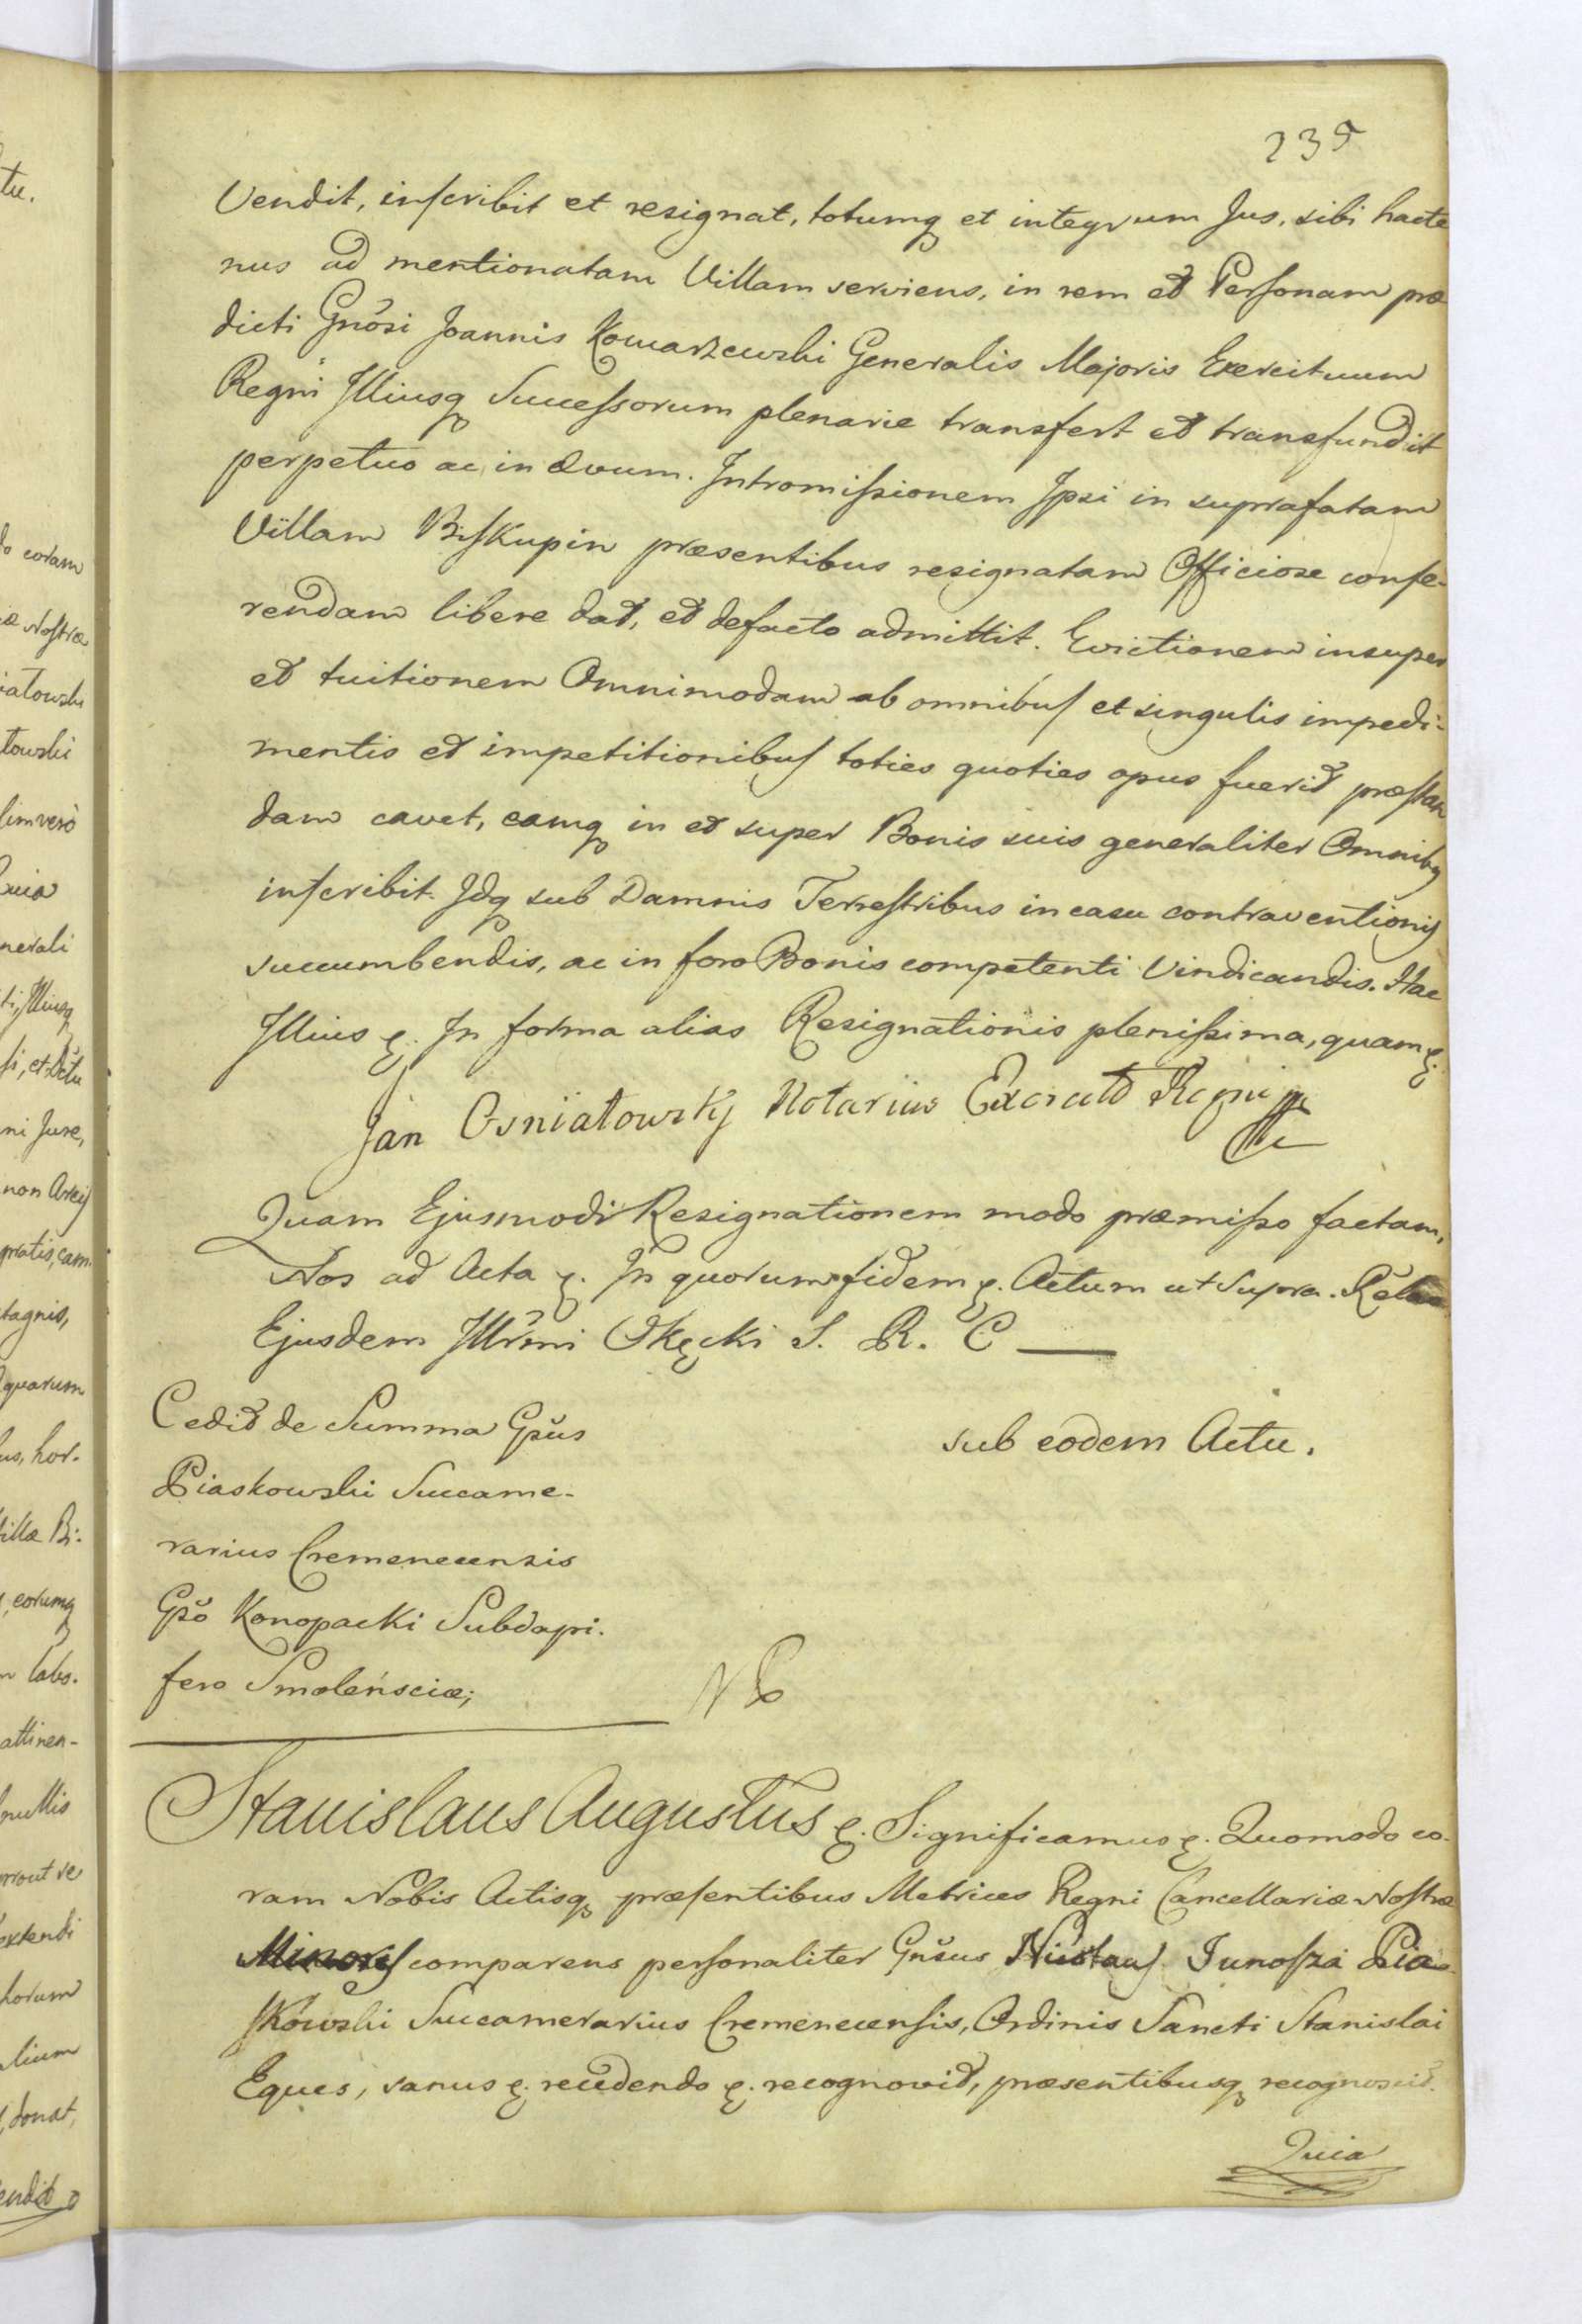 235
Vendit, inscribit et resignat, totumq et integrum Jus, sibi hacte
nus ad mentionatam Villam serviens, in rem et Personam præ
dicti Gnősi Joannis Komarzewski Generalis Majoris Exercituum
Regni Illiusq Successorum plenarie transfert et transfundit
perpetuo ac in ævum. Intromissionem Ipsi in suprafatam
Villam Biskupin præsentibus resignatam Officiose confe-
rendam libere dat, et defacto admittit. Evictionem insuper
et tuitionem Omnimodam ab omnibus et singulis impedi-
mentis et impetitionibus toties quoties opus fuerit præstan
dam cavet, eamq in et super Bonis suis generaliter Omnibq
inscribit. Idq sub Damnis Terrestribus in casu contraventionis
succumbendis, ac in foro Bonis competenti Vindicandis. Hac
Illius &. In forma alias Resignationis plenissima, quam &.
Jan Osniatowsky Notarius Exercitd Regni
Quam Ejusmodi Resignationem modo præmisso factam,
Nos ad Acta &. In quorum fidem &. Actum ut Supra.
Ejusdem Illrmi Okęcki S. R. C
Cedit de Summa Gsus
Piaskowski Succame-
rarius Cremenecensis
Gso Konopacki Subdapi-
fero Smolensciæ;
sub eodem Actu.
Stanislaus Augustus &. Significamus &. Quomodo co-
ram Nobis Actisq præsentibus Metrices Regni Cancellariæ Nostræ
Minoris comparens personaliter Gnsus Junosza Pia-
skowski Succamerarius Cremenecensis, Ordinis Sancti Stanislai
Eques, sanus &. recedendo &. recognovit, præsentibusq recognoscit.
Quia
tu.
coram
Nostræ
iatowski
towski
limverò
Quia
nerali
Illiusq
ni Jure,
pratis, cam-
tagnis,
quarum
us, hor-
illæ Bi-
, eorumq
labo-
attinen-
nullis
prout se
extendi
horum
lium
, donat,
endit